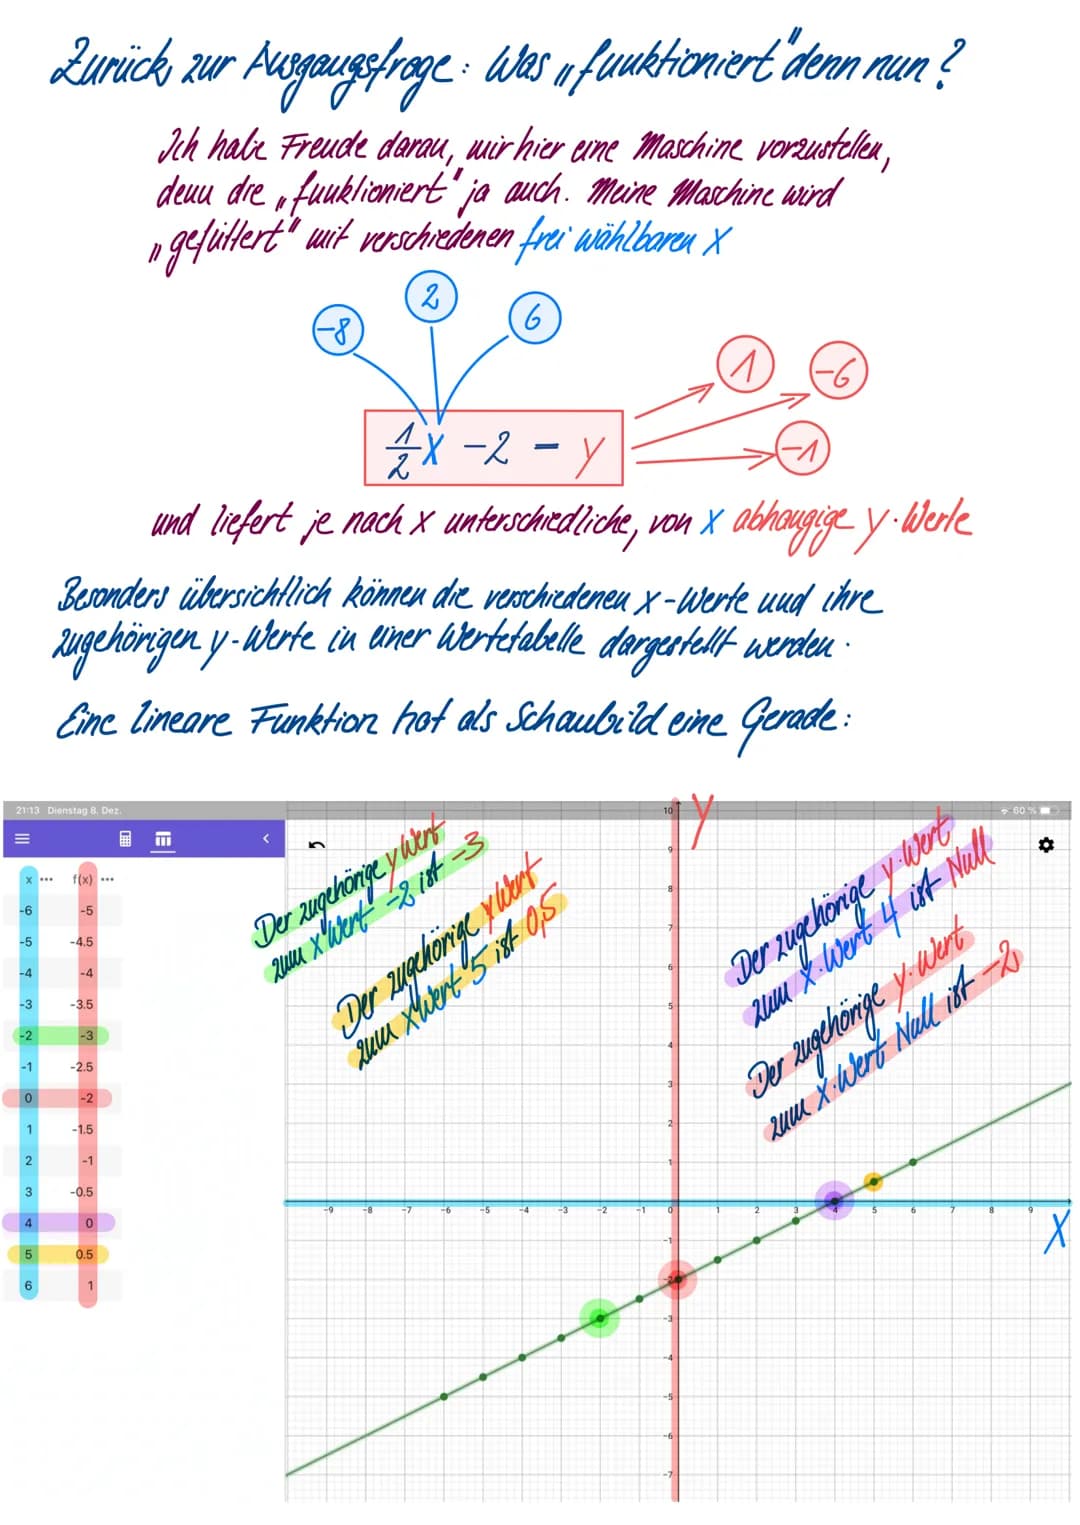 Zurück zur Ausgangsfrage: Was „funktioniert" denn nun?
Ich habe Freude daran, mir hier eine Maschine vorzustellen,
denn die „funktioniert" ja auch. Meine Maschine wird
„gefüttert" mit verschiedenen frei wählbaren x
-8 2 6
1 -6
1/2 x - 2 = y
-1
und liefert je nach x unterschiedliche, von x abhängige y-Werte
Besonders übersichtlich können die verschiedenen x-Werte und ihre
zugehörigen y-Werte in einer Wertetabelle dargestellt werden.
Eine lineare Funktion hat als Schaubild eine Gerade:
21:13 Dienstag 8. Dez.
60 %
x ••• f(x) •••
-6 -5
-5 -4.5
-4 -4
-3 -3.5
-2 -3
-1 -2.5
0 -2
1 -1.5
2 -1
3 -0.5
4 0
5 0.5
6 1
Der zugehörige y Wert
zum x Wert -2 ist -3
Der zugehörige y Wert
zum x Wert 5 ist 0,5
Der zugehörige y-Wert
zum x-Wert 4 ist Null
Der zugehörige y-Wert
zum x-Wert Null ist -2
y
10
9
8
7
6
5
4
3
2
1
-9 -8 -7 -6 -5 -4 -3 -2 -1 0 1 2 3 4 5 6 7 8 9
x
-1
-2
-3
-4
-5
-6
-7